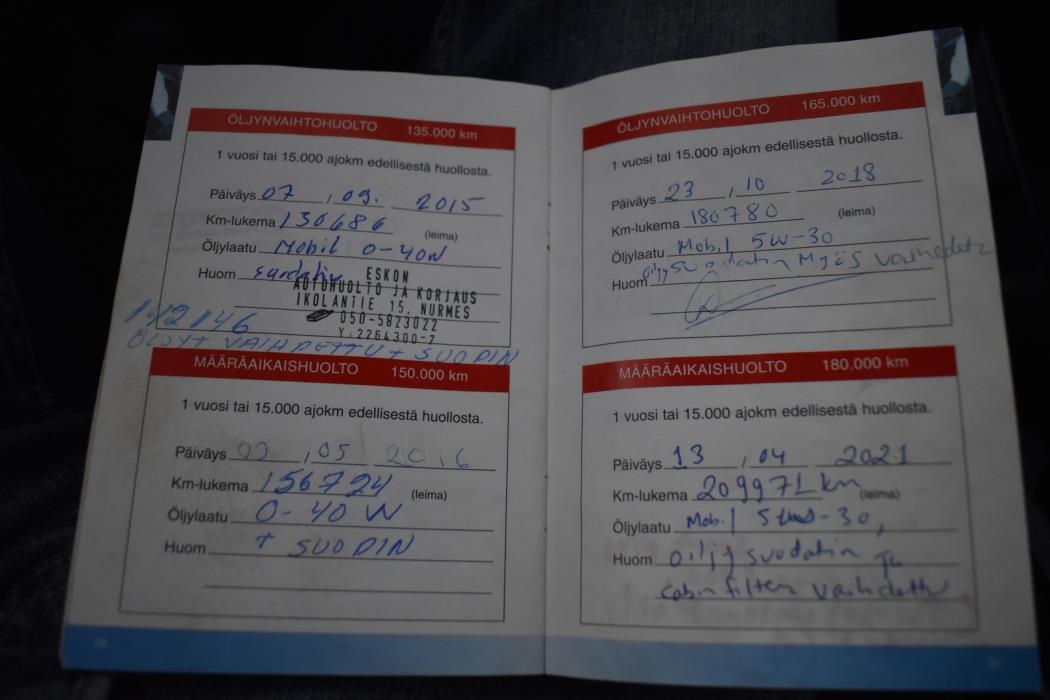 ÖLJYNVAIHTOHUOLTO 135.000 km
1 vuosi tai 15.000 ajokm edellisestä huollosta.
Päiväys 07 / 09. 2015
Km-lukema 130686 (leima)
Öljylaatu Mobil 0-40W
Huom
ESKON
AUTOHUOLTO JA KORJAUS
IKOLANTIE 15, NURMES
050-5823022
Y. 2264300-7
142146
ÖLJYT VAIHDETTU + SUODIN
MÄÄRÄAIKAISHUOLTO 150.000 km
1 vuosi tai 15.000 ajokm edellisestä huollosta.
Päiväys / 05 2016
Km-lukema 156724 (leima)
Öljylaatu 0-40 W
Huom + SUODIN
ÖLJYNVAIHTOHUOLTO 165.000 km
1 vuosi tai 15.000 ajokm edellisestä huollosta.
Päiväys 23 / 10 2018
Km-lukema 180780 (leima)
Öljylaatu Mobil 5W-30
Huom öljysuodatin Myös vaihdettu
MÄÄRÄAIKAISHUOLTO 180.000 km
1 vuosi tai 15.000 ajokm edellisestä huollosta.
Päiväys 13 / 04 2021
Km-lukema 209971 km (leima)
Öljylaatu Mobil 5W-30,
Huom oiljy suodatin Ja
cabin filter vaihdettu